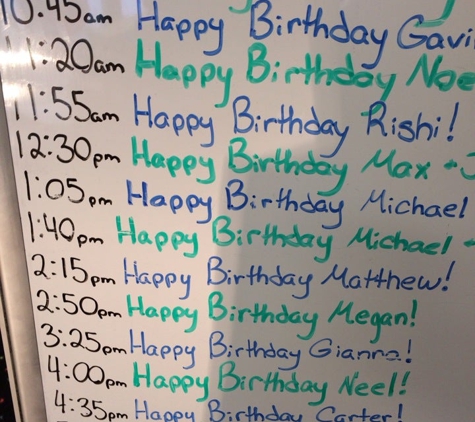 10:45am Happy Birthday Gavi
11:20am Happy Birthday Noe
11:55am Happy Birthday Rishi!
12:30pm Happy Birthday Max +J
1:05pm Happy Birthday Michael
1:40pm Happy Birthday Michael
2:15pm Happy Birthday Matthew!
2:50pm Happy Birthday Megan!
3:25pm Happy Birthday Gianna!
4:00pm Happy Birthday Neel!
4:35pm Happy Birthday Carter!